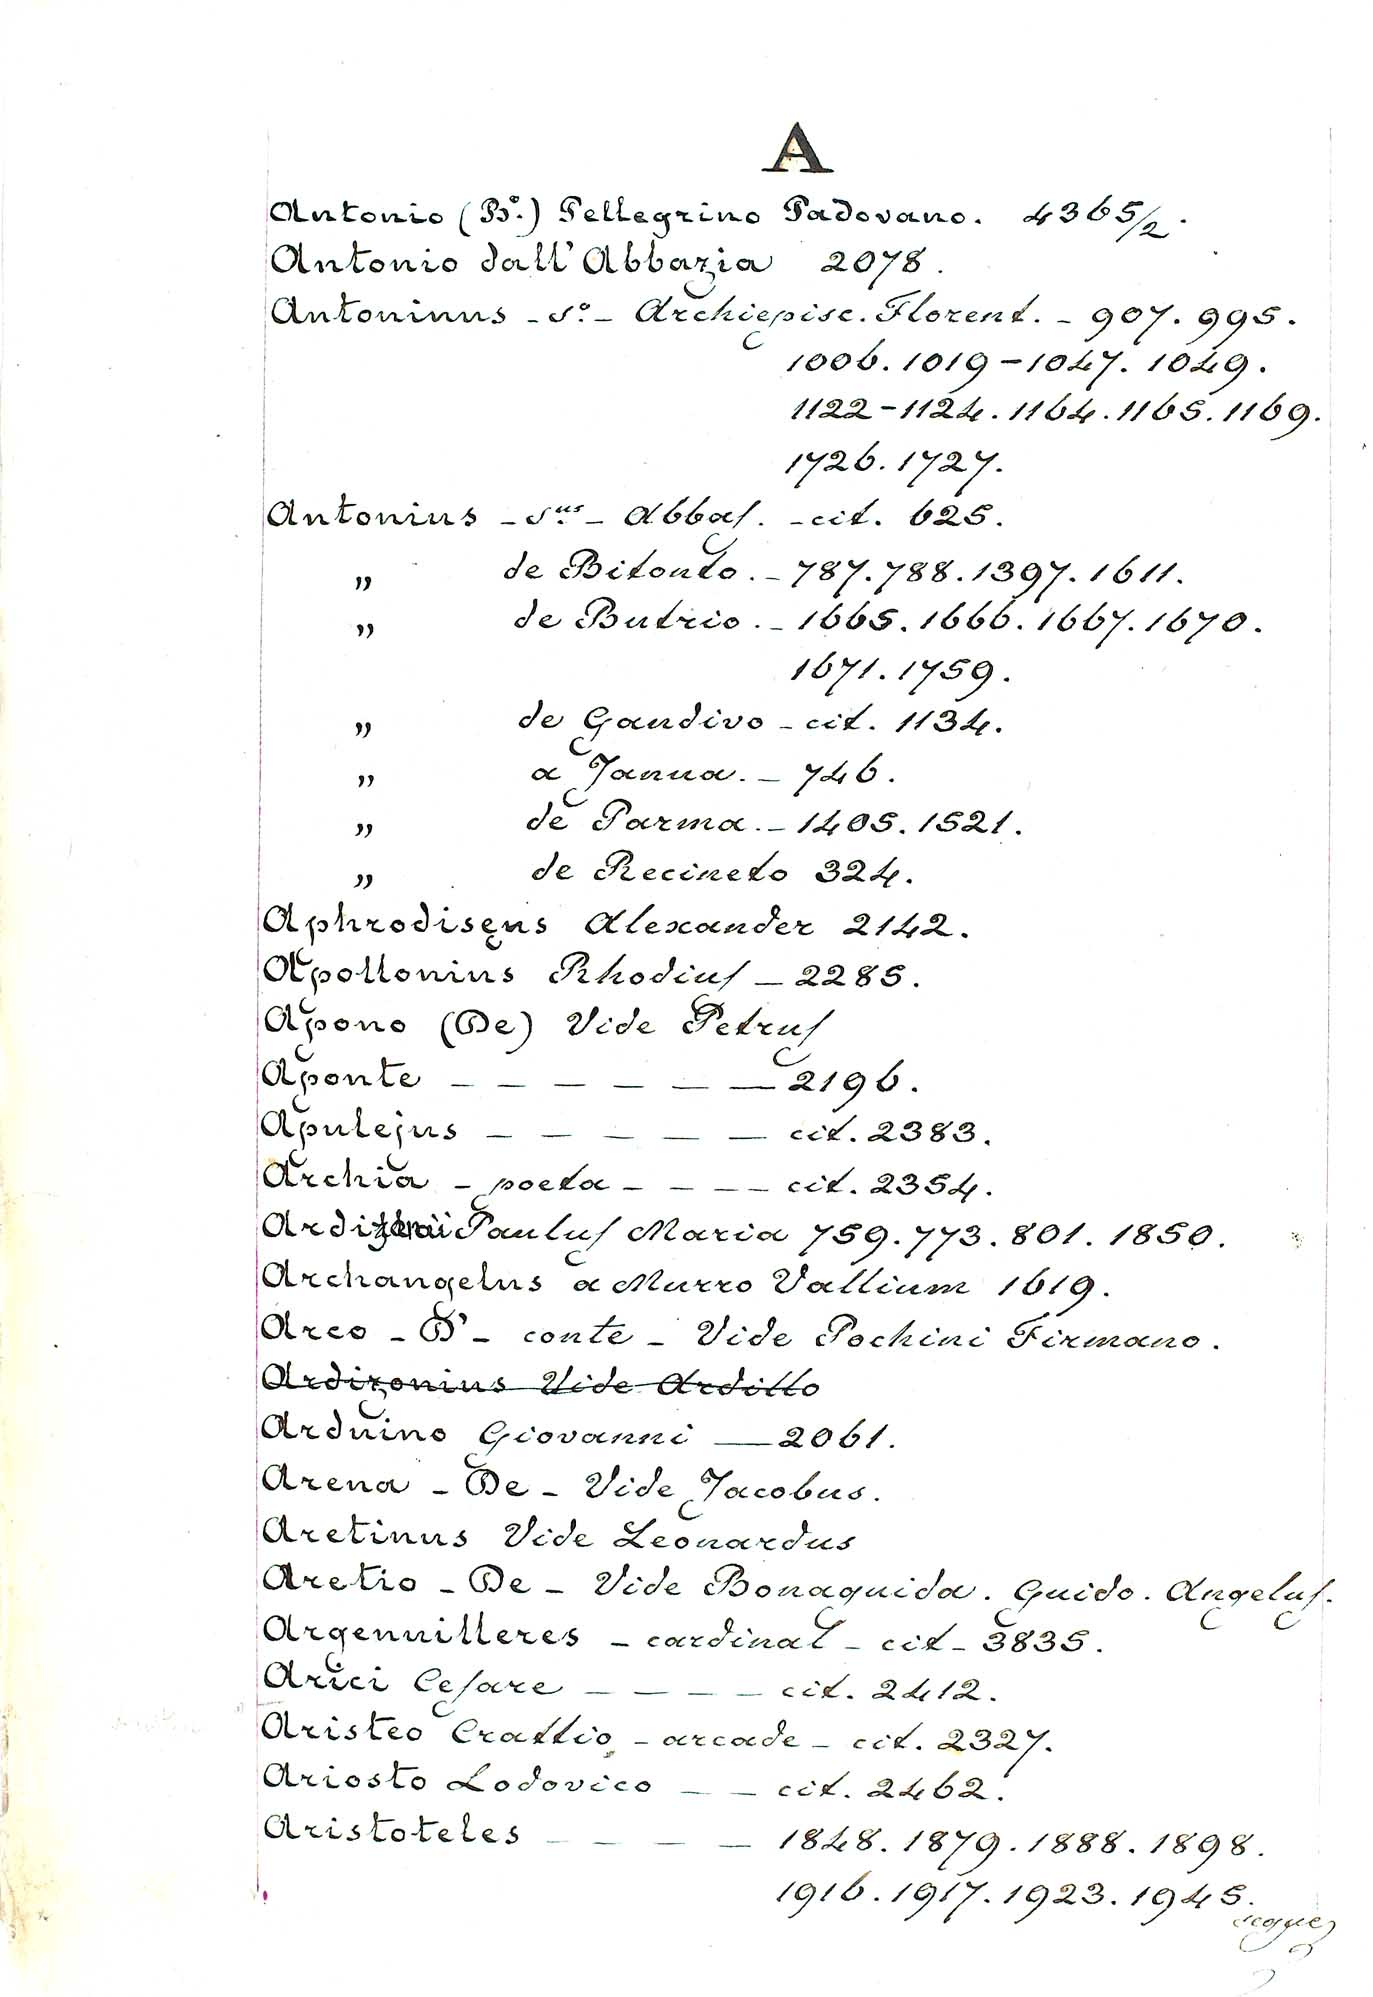 A
Antonio (B°.) Pellegrino Padovano. 4365/2.
Antonio dall'Abbazia 2078.
Antoninus - S° - Archiepisc. Florent. - 907. 995.
1006. 1019 - 1047. 1049.
1122 - 1124. 1164. 1165. 1169.
1726. 1727.
Antonius - S.us - Abbas. - cit. 625.
„ de Bitonto. - 787. 788. 1397. 1611.
„ de Butrio. - 1665. 1666. 1667. 1670.
1671. 1759.
„ de Gandivo - cit. 1134.
„ a Janua. - 746.
„ de Parma. - 1405. 1521.
„ de Recineto 324.
Aphrodiseus Alexander 2142.
Apollonius Rhodius - 2285.
Apono (De) Vide Petrus
Aponte - - - - - - 2196.
Apulejus - - - - - cit. 2383.
Archia - poeta - - - - cit. 2354.
Paulus Maria 759. 773. 801. 1850.
Archangelus a Murro Vallium 1619.
Arco - D' - conte - Vide Pochini Firmano.
Ardizonius Vide Ardillo
Arduino Giovanni — 2061.
Arena - De - Vide Jacobus.
Aretinus Vide Leonardus
Aretio - De - Vide Bonaguida. Guido. Angelus.
Argennilleres - cardinal - cit - 3835.
Arici Cesare - - - - cit. 2412.
Aristeo Crattio - arcade - cit. 2327.
Ariosto Lodovico - - cit. 2462.
Aristoteles - - - - 1848. 1879. 1888. 1898.
1916. 1917. 1923. 1945.
segue